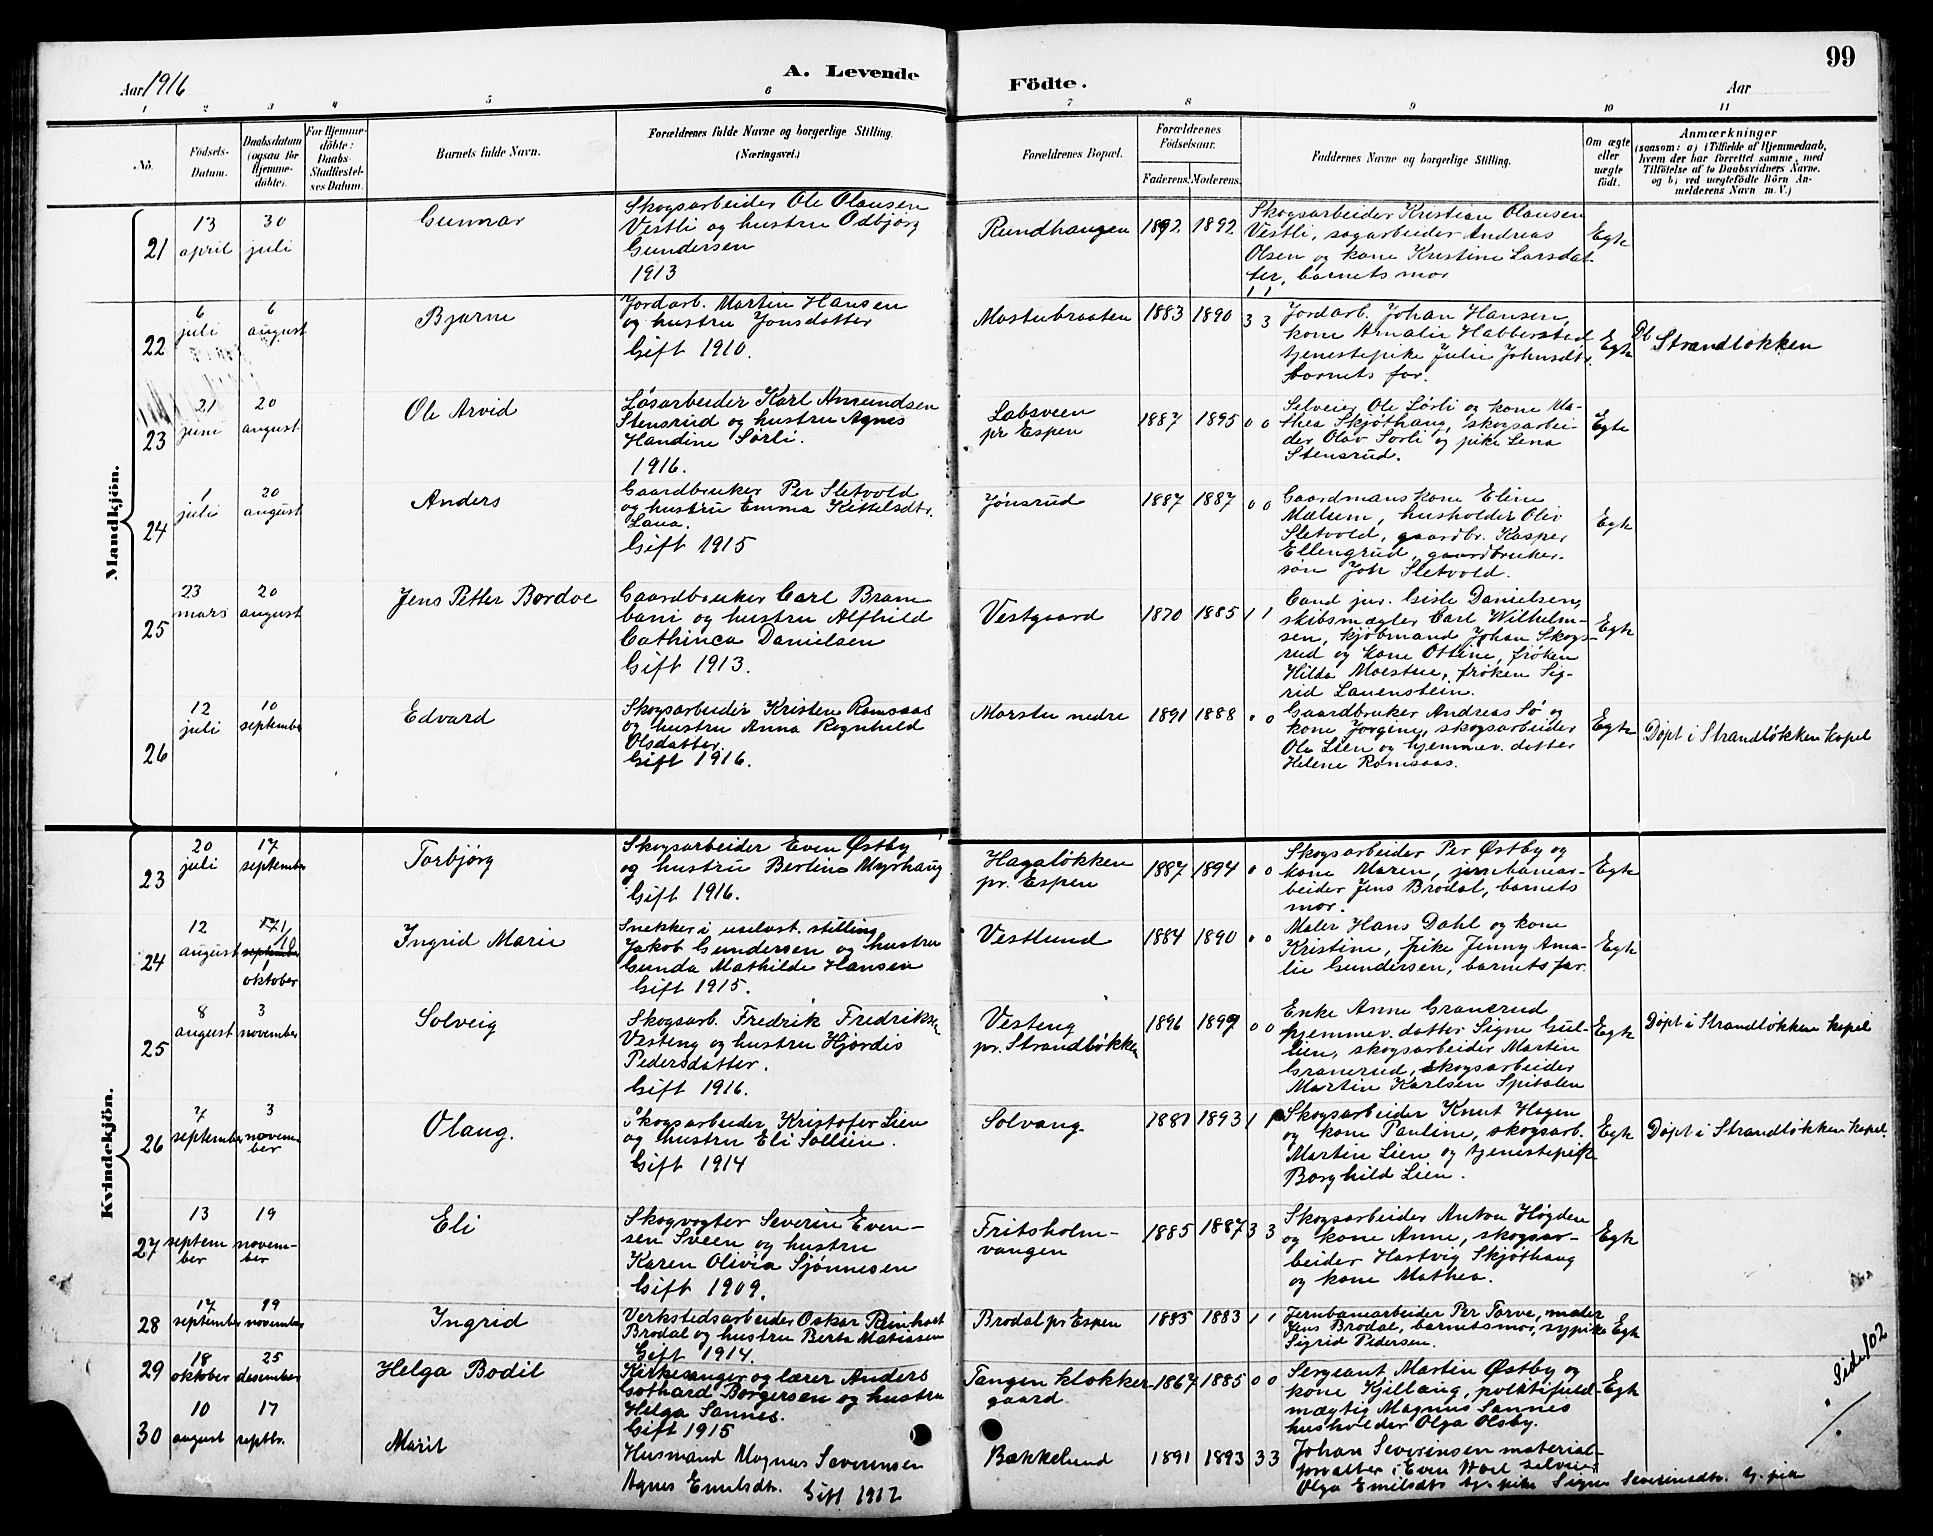 99
Aar 1916
A. Levende
Födte.
Aar
1 2 3 4 5 6 7 8 9 10 11
No.
Födsels-
Datum.
Daabsdatum
(ogsaa for
Hjemme-
döbte).
For Hjemme-
döbte:
Daabs-
Stadfæstel-
ses Datum.
Barnets fulde Navn.
Forældrenes fulde Navne og borgerlige Stilling.
(Næringsvei.)
Forældrenes Bopæl.
Forældrenes
Födselsaar.
Faderens. Moderens.
Faddernes Navne og borgerlige Stilling.
Om ægte
eller
uægte
födt.
Anmærkninger
(saasom: a) i Tilfælde af Hjemmedaab,
hvem der har forrettet samme, med
Tilföielse af to Daabsvidners Navne.
og b) ved uægtefödte Börn An-
melderens Navn m. V.)
Mandkjön.
21
13
april
30
juli
Gunnar
Skogsarbeider Ole Olausen
Vestli og hustru Odbjørg
Gundersen
1913
Rundhaugen
1892 1892
Skogsarbeider Kristian Olausen
Vestli, sagarbeider Andreas
Olsen og kone Kristine Larsdat-
ter, barnets mor
1 1
Egte
22
6
juli
6
august
Bjarne
Jordarb. Martin Hansen
og hustru Jonsdatter
Gift 1910.
Mostubraaten
1883 1890 3 3
Jordarb. Johan Hansen,
kone Amalie Habberstad
tjenestepike Julie Johnsdtr.
barnets far.
Egte
Db Strandløkken
23
21
juni
20
august
Ole Arvid
Løsarbeider Karl Amundsen
Stensrud og hustru Agnes
Handine Sørli.
1916.
Labsveen
pr Espen
1887 1895 0 0
Selveier Ole Sørli og kone Ma-
thea Skjøthaug, skogsarbei-
der Olav Sørli og pike Lena
Stensrud.
Egte
24
1
juli
20
august
Anders
Gaardbruker Per Sletvold
og hustru Emma Kittelsdtr.
Laua.
Gift 1915
Jønsrud
1887 1887 0 0
Gaardmanskone Eline
Mælum, husholder Oliv
Sletvold, gaardbr. Kasper
Ellengrud, gaardbruker-
søn Joh Sletvold.
Egte
25
23
mars
20
august
Jens Petter Bordoe
Gaardbruker Carl Bram
bani og hustru Alfhild
Cathinca Danielsen
Gift 1913.
Vestgaard
1870 1885 1 1
Cand jur. Gisle Danielsen,
skibsmægler Carl Wilhelm-
sen, kjøbmand Johan Skogs-
rud og kone Ottine, frøken
Hilda Moestue, frøken Sig-
rid Lauenstein.
Egte
26
12
juli
10
september
Edvard
Skogsarbeider Kristen Romsaas
og hustru Anna Ragnhild
Olsdatter.
Gift 1916.
Morstu nedre
1891 1888 0 0
Gaardbruker Andreas Sø og
kone Jørgine, skogsarbeider
Ole Lien og hjemmev. datter
Helene Rømsaas.
Egte
Døpt i Strandløkken kapel
Kvindekjön.
23
20
juli
17
september
Torbjørg
Skogsarbeider Even Østby
og hustru Berline Myrhaug
Gift 1916.
Hagaløkken
pr. Espen
1887 1894 0 0
Skogsarbeider Per Østby og
kone Maren, jernbanear-
beider Jens Brodal, barnets
mor.
Egte
24
12
august
1
oktober
Ingrid Marie
Snekker i uselvst. stilling
Jakob Gundersen og hustru
Gunda Mathilde Hansen
Gift 1915.
Vestlund
1884 1890 0 0
Maler Hans Dahl og kone
Kristine, pike Jenny Ama-
lie Gundersen, barnets far.
Egte
25
8
august
3
november
Solveig
Skogsarb. Fredrik Fredriksen
Vesteng og hustru Hjørdis
Pedersdatter.
Gift 1916.
Vesteng
pr. Strandløkken
1896 1899 0 0
Enke Anne Granerud
hjemmev. datter Signe Gul-
lien, skogsarbeider Martin
Granerud, skogsarbeider
Martin Karlsen Spitalen
Egte
Døpt i Strandløkken kapel
26
7
september
3
novem-
ber
Olaug.
Skogsarbeider Kristofer Lien
og hustru Eli Sollien.
Gift 1914
Solvang.
1881 1893 1 1
Skogsarbeider Knut Hagen
og kone Pauline, skogsarb.
Martin Lien og tjenestepike
Borghild Lien.
Egte
Døpt i Strandløkken kapel.
27
13
septem
ber
19
novem-
ber
Eli
Skogvogter Severin Even-
sen Sveen og hustru
Karen Olivia Sjønnesen
Gift 1909.
Fritsholm-
vangen
1885 1887 3 3
Skogsarbeider Anton Høgden
og kone Anne, skogsar-
beider Hartvig Skjøthaug
og kone Mathea.
Egte
28
17
september
19
november
Ingrid
Verkstedsarbeider Oskar Reinhart
Brodal og hustru Berta Matissen
Gift 1914.
Brodal pr Espen
1885 1883 1 1
Jernbanearbeider Per Torve, maler
Jens Brodal, barnets mor, sypike
Sigrid Pedersen.
Egte
29
18
oktober
25
desember
Helga Bodil
Kirkesanger og lærer Anders
Gothard Borgersen og hustru
Helga Sannes.
Gift 1915
Tangen klokker
gaard.
1867 1885 0 0
Sergeant Martin Østby og
kone Kjellaug, politifuld-
mægtig Magnus Sannes
husholder Olga Olsby.
Egte
30
10
august
17
septbr.
Marit
Husmand Magnus Severinsen
Agnes Emilsdtr. Gift 1912
Bækkelund
1891 1893 3 3
Johan Severinsen material-
forvalter, Even Hoel selveier
Olga Emilsdtr tj. pike Signe Severinsdtr. tj. pike
./. Side 102